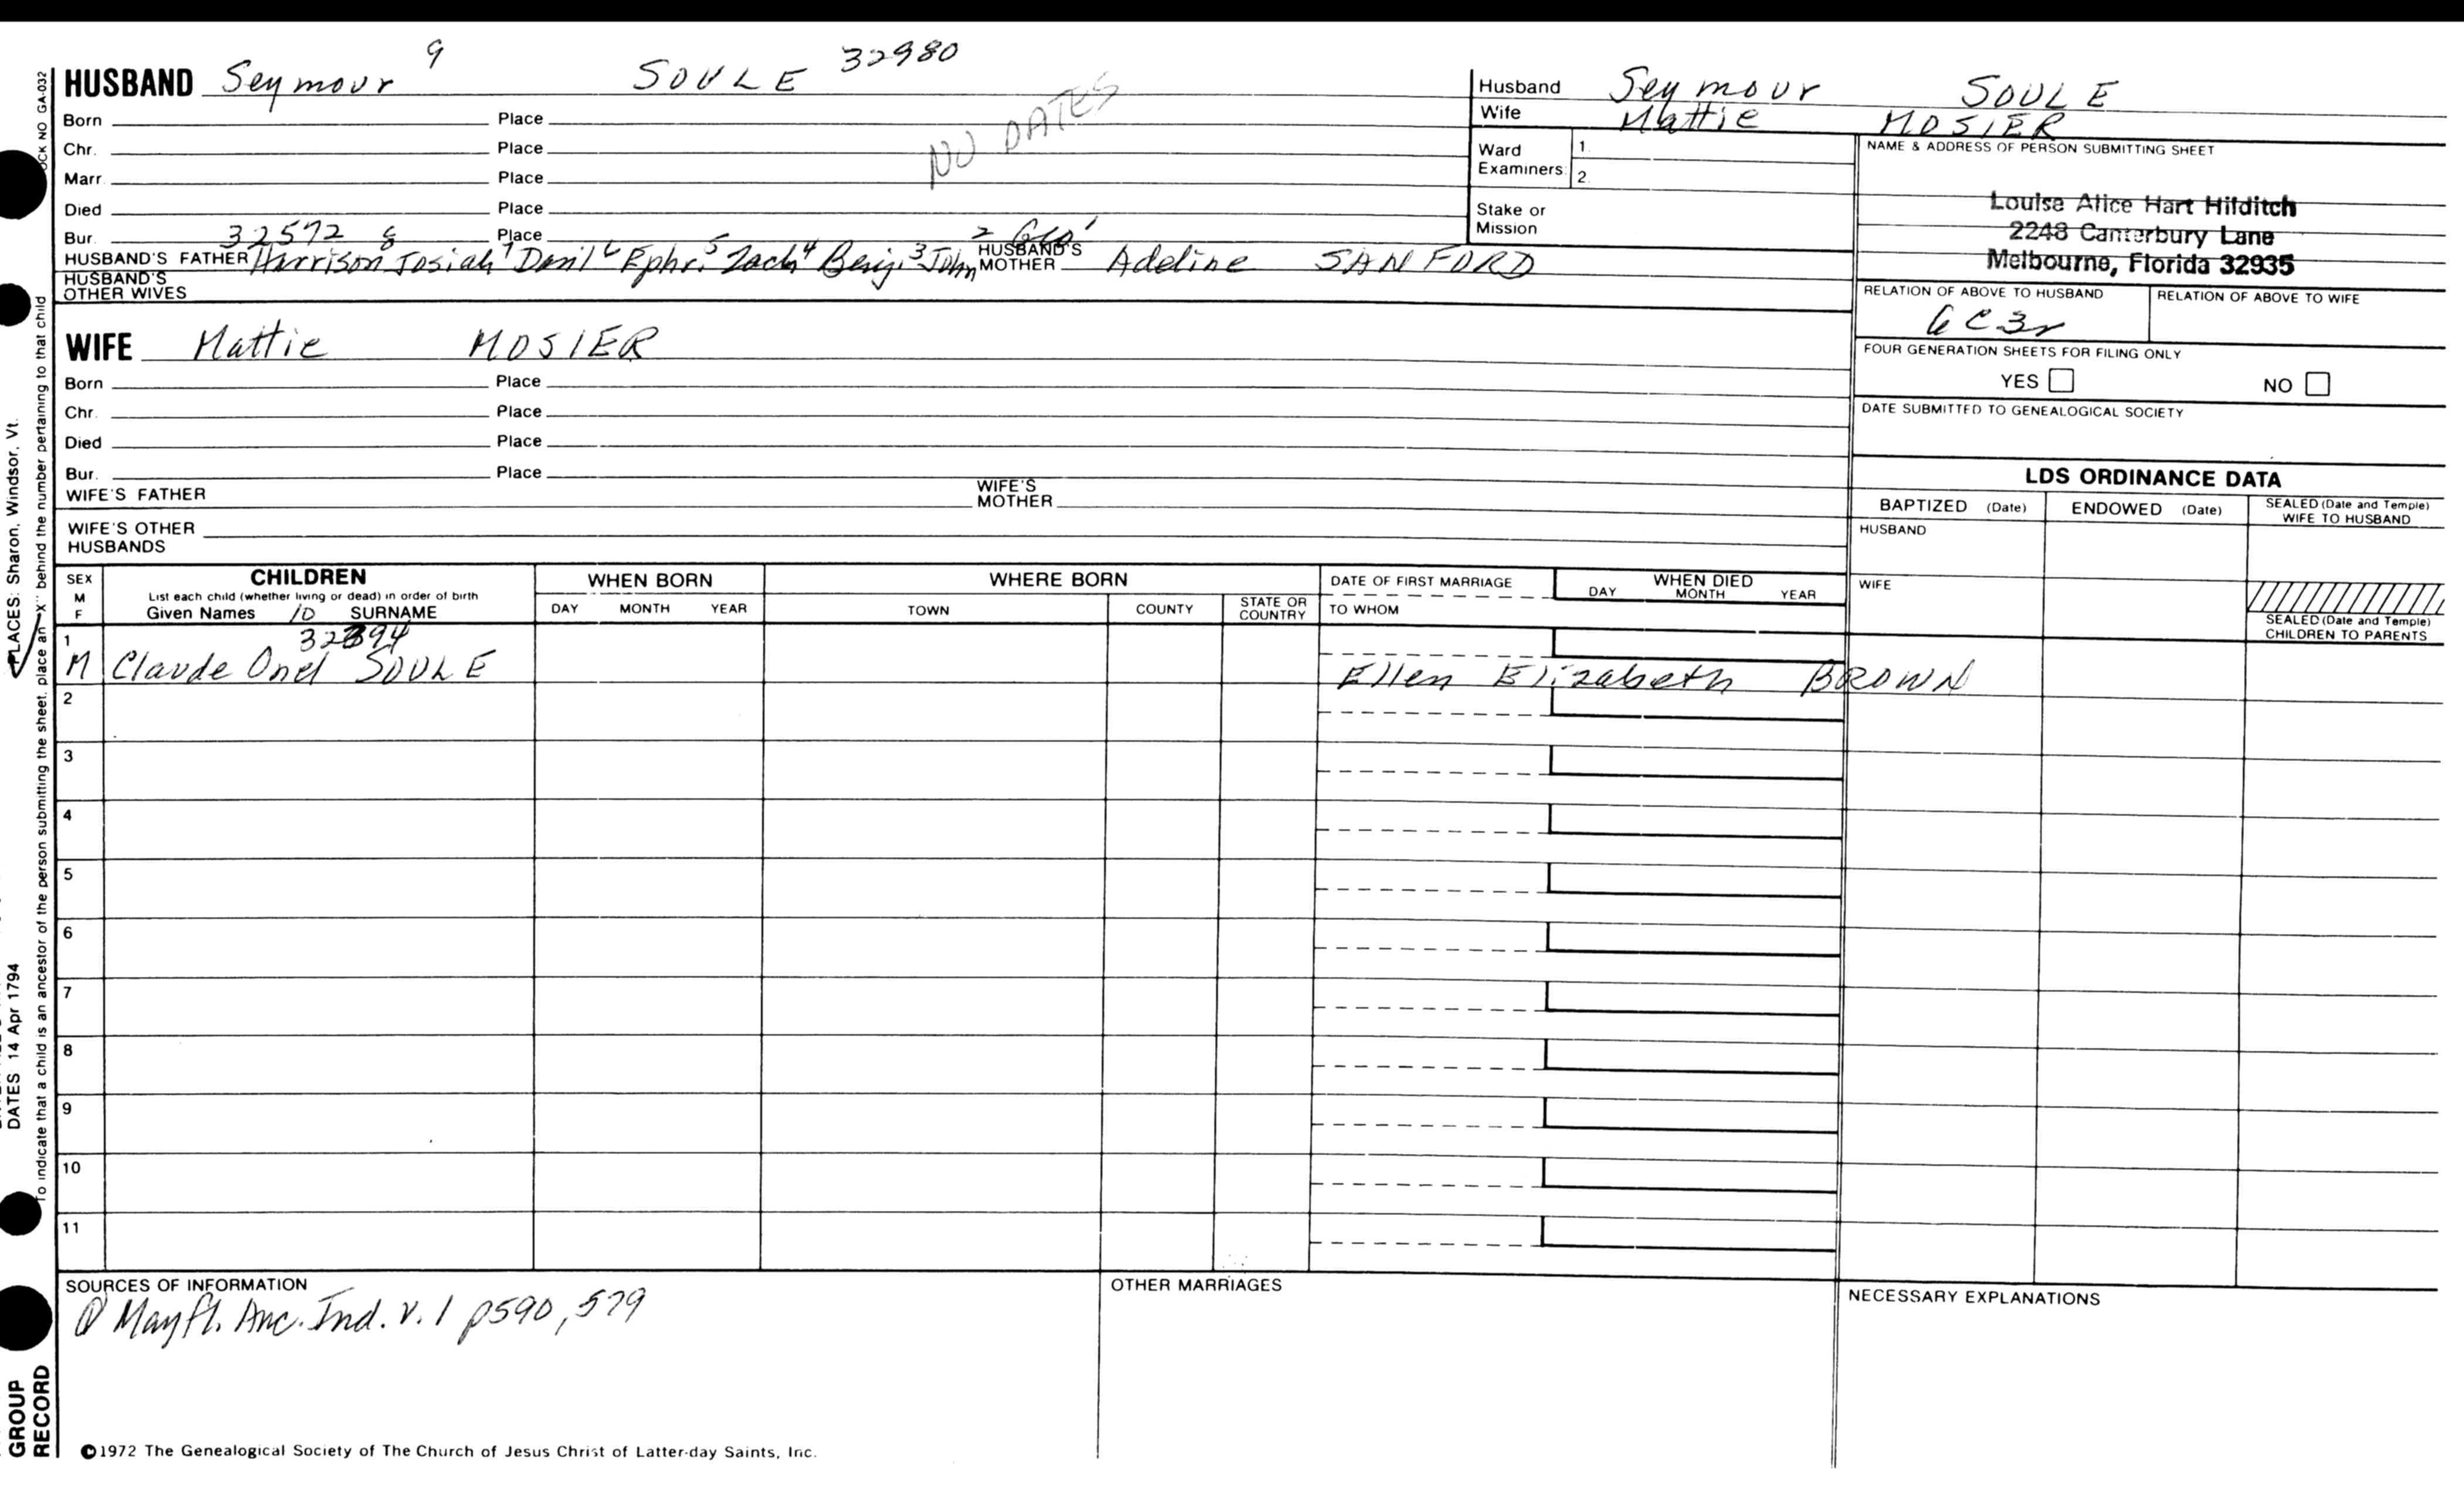 9
32980
HUSBAND Seymour SOULE
Born Place
Chr. Place
Marr. Place
Died Place
Bur. Place
NO DATES
32572 8 2 Geo 1
HUSBAND'S FATHER Harrison Josiah 7 Danl 6 Ephr. 5 Zach 4 Benj. 3 John HUSBAND'S MOTHER Adeline SANFORD
HUSBAND'S OTHER WIVES
WIFE Mattie MOSIER
Born Place
Chr. Place
Died Place
Bur. Place
WIFE'S FATHER WIFE'S MOTHER
WIFE'S OTHER HUSBANDS
Husband Seymour SOULE
Wife Mattie MOSIER
Ward Examiners: 1. 2.
Stake or Mission
NAME & ADDRESS OF PERSON SUBMITTING SHEET
Louise Alice Hart Hilditch
2248 Canterbury Lane
Melbourne, Florida 32935
RELATION OF ABOVE TO HUSBAND RELATION OF ABOVE TO WIFE
6C3r
FOUR GENERATION SHEETS FOR FILING ONLY
YES NO
DATE SUBMITTED TO GENEALOGICAL SOCIETY
LDS ORDINANCE DATA
BAPTIZED (Date) ENDOWED (Date) SEALED (Date and Temple) WIFE TO HUSBAND
HUSBAND
WIFE
SEALED (Date and Temple) CHILDREN TO PARENTS
SEX M F
CHILDREN
List each child (whether living or dead) in order of birth
Given Names 10 SURNAME
WHEN BORN
DAY MONTH YEAR
WHERE BORN
TOWN COUNTY STATE OR COUNTRY
DATE OF FIRST MARRIAGE
TO WHOM
WHEN DIED
DAY MONTH YEAR
1
M Claude Onel SOULE Ellen Elizabeth BROWN
2
3
4
5
6
7
8
9
10
11
SOURCES OF INFORMATION
Mayfl. Anc. Ind. v. 1 p590, 579
OTHER MARRIAGES
NECESSARY EXPLANATIONS
©1972 The Genealogical Society of The Church of Jesus Christ of Latter-day Saints, Inc.
OCK NO GA-032
To indicate that a child is an ancestor of the person submitting the sheet, place an "X" behind the number pertaining to that child
PLACES: Sharon, Windsor, Vt.
DATES 14 Apr 1794
GROUP
RECORD